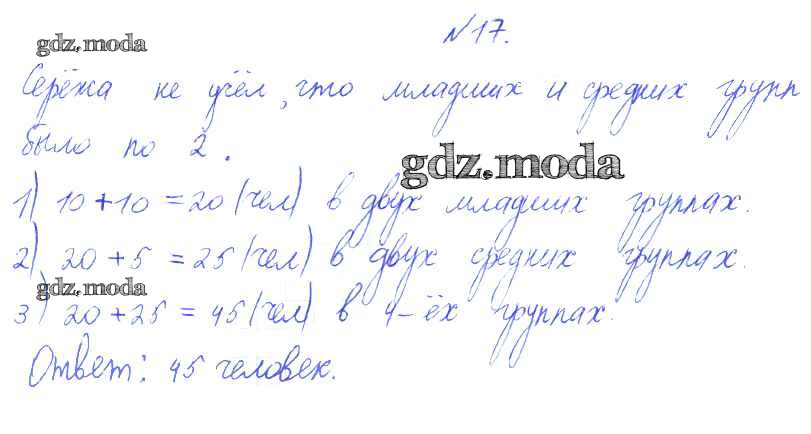 gdz.moda
№17.
Серёжа не учёл, что младших и средних групп
было по 2.
gdz.moda
1) 10+10=20 (чел) в двух младших группах.
2) 20+5=25 (чел) в двух средних группах.
gdz.moda
3) 20+25=45 (чел) в 4-ёх группах.
Ответ: 45 человек.